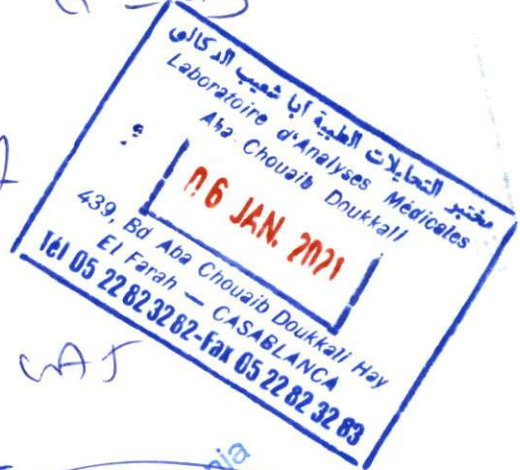 مختبر التحليلات الطبية أبا شعيب الدكالي
Laboratoire d'Analyses Médicales
Aba Chouaib Doukkali
06 JAN. 2021
439, Bd Aba Chouaib Doukkali Hay
El Farah — CASABLANCA
Tél 05 22 82 32 82-Fax 05 22 82 32 83